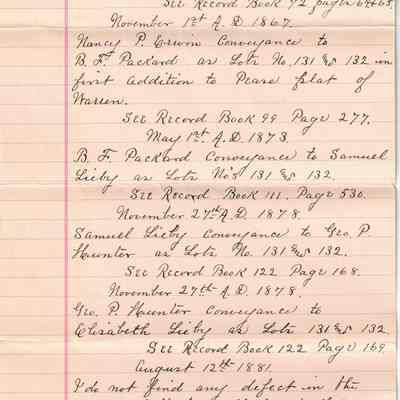 See Record Book 92 pages 64&65
November 1st A.D. 1867.
Nancy P. Erwin Conveyance to
B. F. Packard as Lots No. 131 & 132 in
first Addition to Pease plat of
Warren.
See Record Book 99 Page 277.
May 1st A.D. 1873.
B. F. Packard Conveyance to Samuel
Lieby as Lots No's 131 & 132.
See Record Book 111. Page 530.
November 27th A.D. 1878.
Samuel Lieby Conveyance to Geo. P.
Hunter as Lots No. 131 & 132.
See Record Book 122 Page 168.
November 27th A.D. 1878.
Geo. P. Hunter Conveyance to
Elisabeth Lieby as Lots 131 & 132
See Record Book 122 Page 169.
August 12th 1881.
I do not find any defect in the